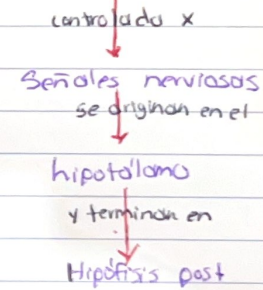 controlado x
Señales nerviosas
se originan en el
hipotálamo
y terminan en
Hipófisis post